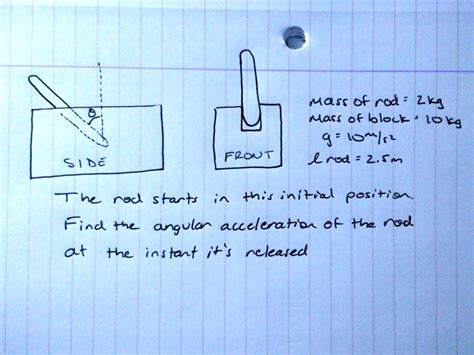 θ
SIDE
FRONT
Mass of rod = 2kg
Mass of block = 10kg
g = 10m/s2
l rod = 2.5m
The rod starts in this initial position.
Find the angular acceleration of the rod
at the instant it's released